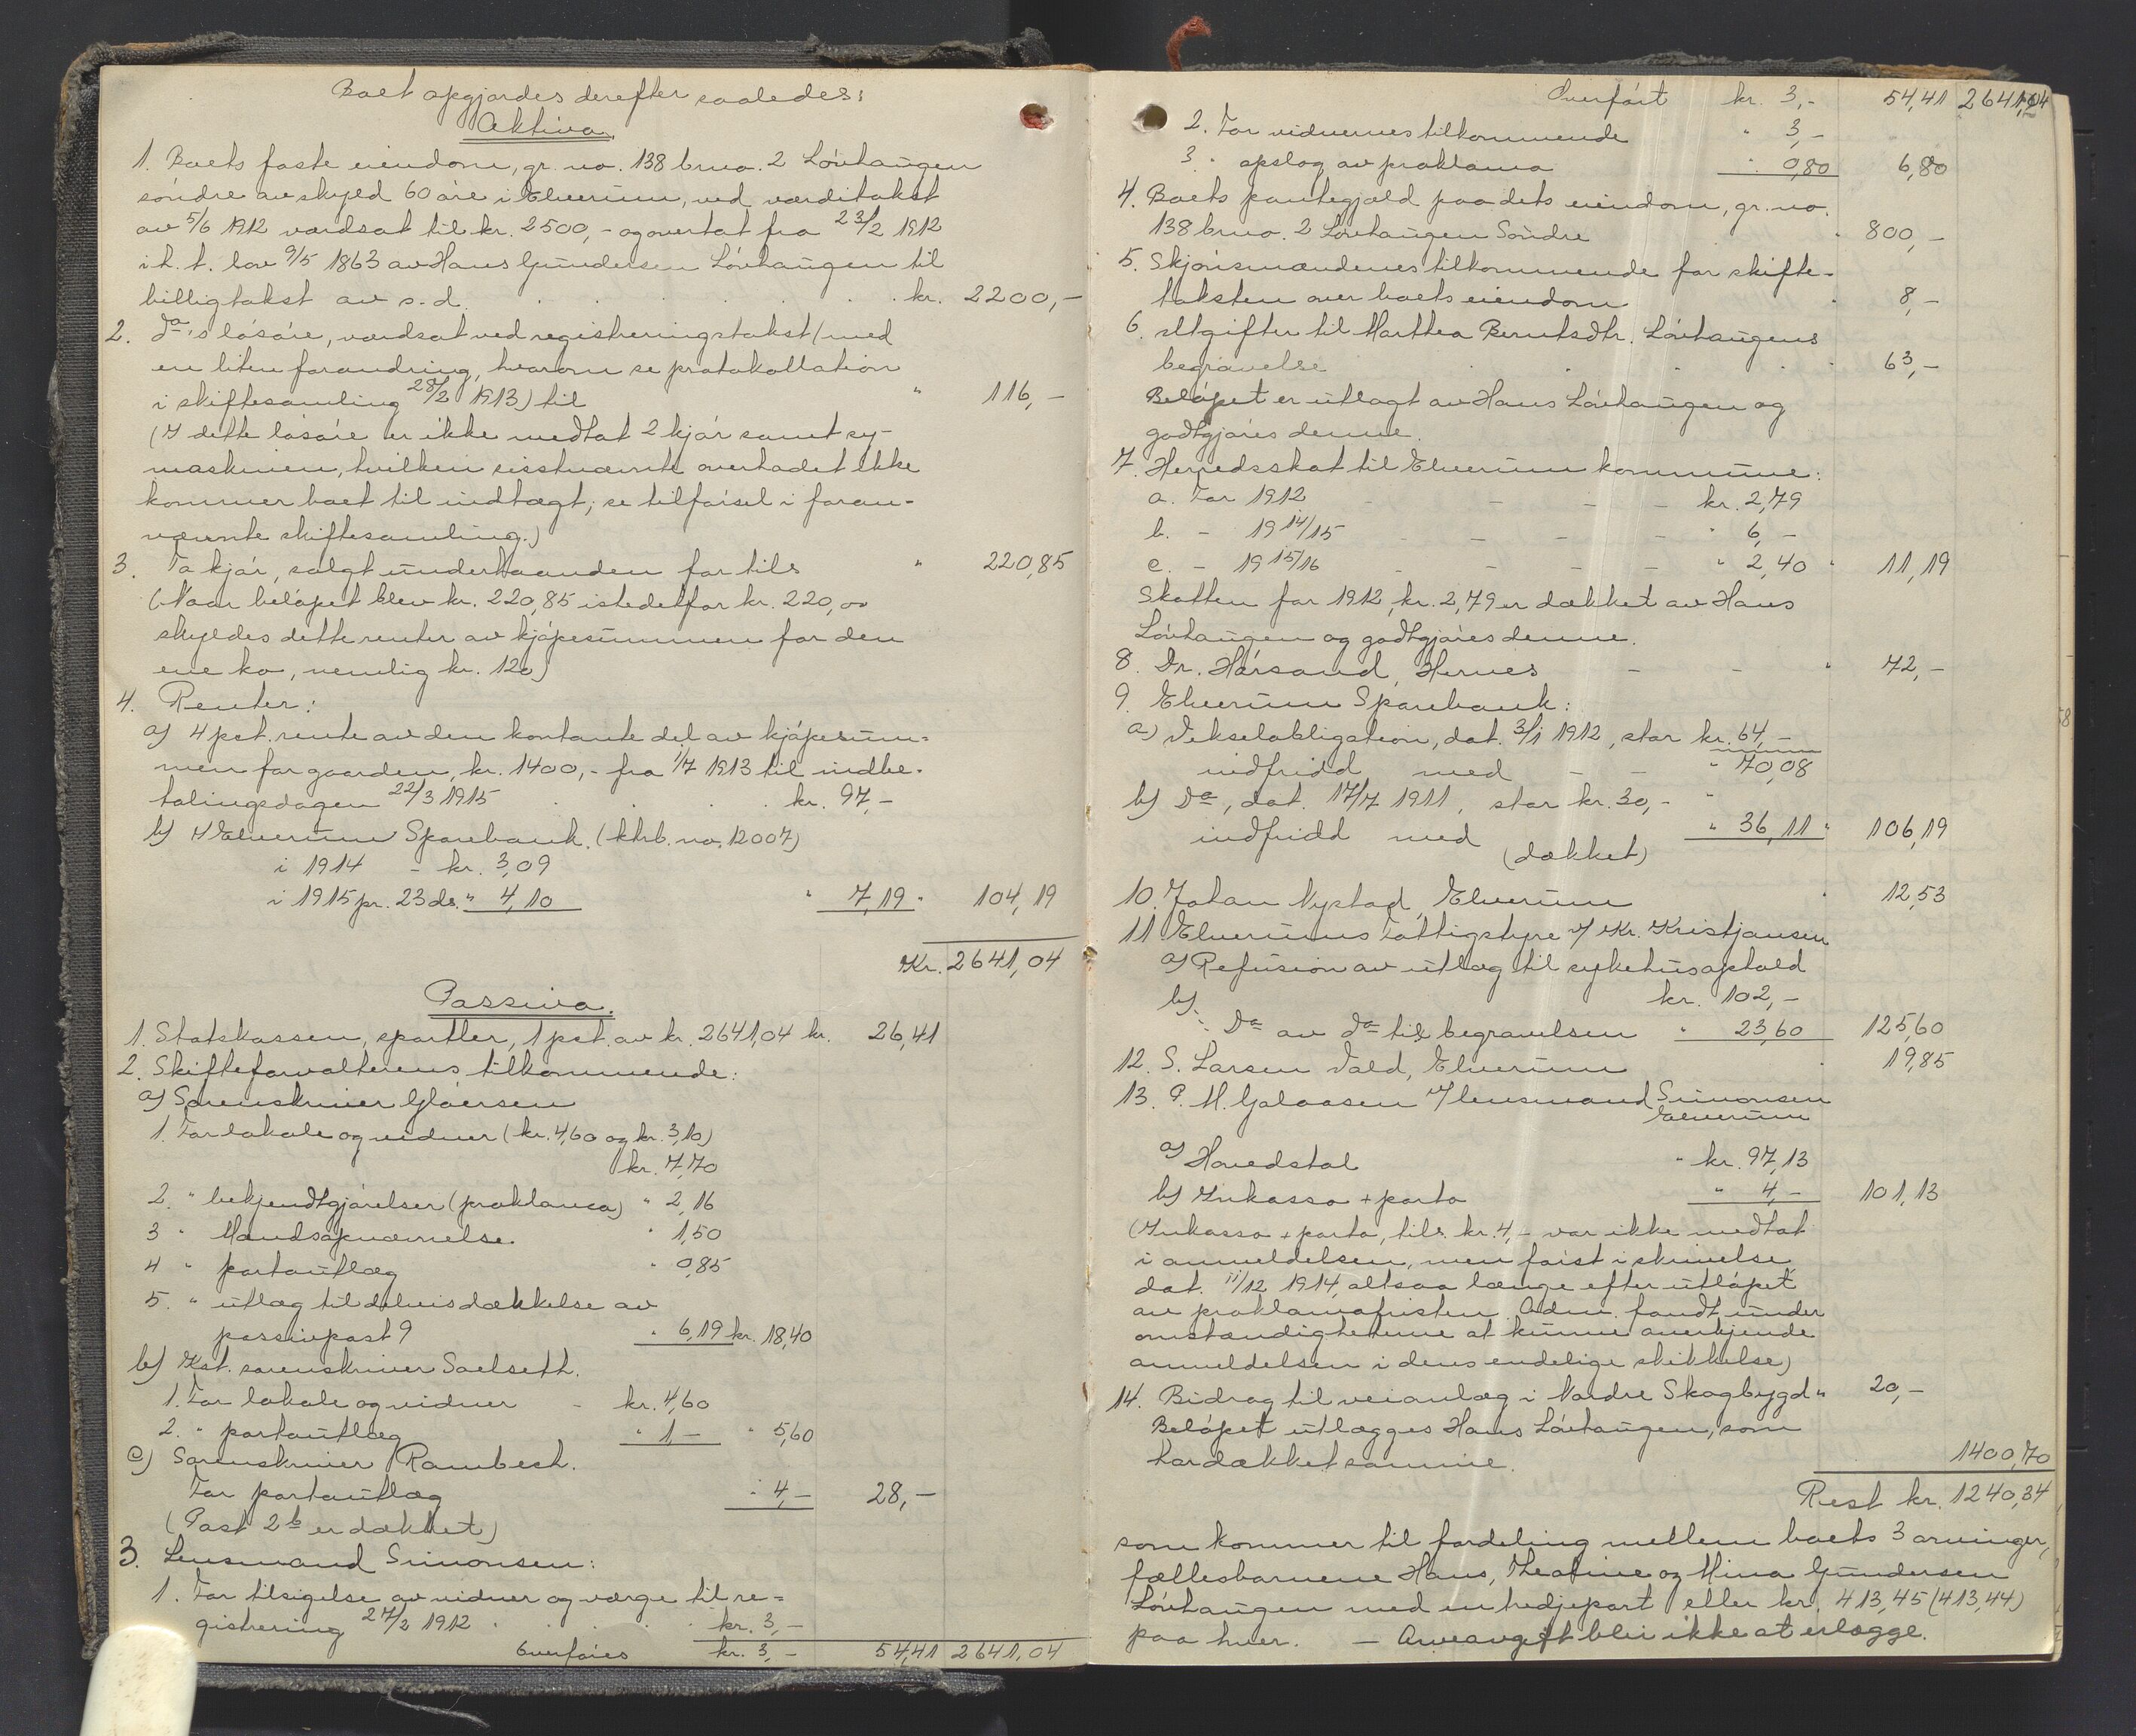 Boet opgjordes derefter saaledes:
Aktiva.
1. Boets faste eiendom, gr. no. 138 brno. 2 Lövhaugen
söndre av skyld 60 öre i Elverum, ved værditakst
av 5/6 1912 værdsat til kr. 2500,- og overtat fra 23/2 1912
i h. t. lov 9/5 1863 av Hans Gundersen Lövhaugen til
billigtakst av s. d. . . . . . . kr. 2200,-
2. Do's lösöre, værdsat ved registreringstakst (med
en liten forandring, hvorom se protokollation
i skiftesamling 28/2 1913) til " 116,-
(I dette lösöre er ikke medtat 2 kjör samt sy-
maskinen, hvilken sisstnævnte overhodet ikke
kommer boet til indtægt; se tilförsel i foran-
nævnte skiftesamling.)
3. To kjör, solgt underhaanden for tils " 220,85
(Naar belöpet blev kr. 220,85 istedetfor kr. 220,00
skyldes dette renter av kjöpesummen for den
ene ko, nemlig kr. 120)
4. Renter:
a) 4 pct. rente av den kontante del av kjöpesum-
men for gaarden, kr. 1400,- fra 1/7 1913 til indbe-
talingsdagen 22/3 1915 . . . . kr. 97,-
b) I Elverum Sparebank. (ktrb. no. 12007)
i 1914 - kr. 3,09
i 1915 pr. 23 ds. " 4,10 " 7,19 " 104,19
Kr. 2641,04
Passiva.
1. Statskassen, sportler, 1 pct. av kr. 2641,04 kr. 26,41
2. Skifteforvalterens tilkommende:
a) Sorenskriver Glöersen
1. For lokale og vidner (kr. 4,60 og kr. 3,10)
kr. 7,70
2. " bekjendtgjörelser (proklama) " 2,16
3 " Mandsopnævnelse " 1,50
4 " portoutlæg " 0,85
5. " utlæg til delvis dækkelse av
passivpost 9 " 6,19 kr. 18,40
b) Kst. sorenskriver Saelseth.
1. For lokale og vidner - kr. 4,60
2. " portoutlæg " 1,- " 5,60
c) Sorenskriver Rambech.
For portoutlæg " 4,- 28,-
(Post 2 b er dækket)
3. Lensmand Simonsen:
1. For tilsigelse av vidner og værge til re-
gistrering 27/2 1912 . . . . kr. 3,-
Overföres kr. 3,- 54,41 2641,04
Overfört kr. 3,- 54,41 2641,04
2. For vidnernes tilkommende " 3,-
3 " opslag av proklama " 0,80 6,80
4. Boets pantegjæld paa dets eiendom, gr. no.
138 brno. 2 Lövhaugen Söndre " 800,-
5. Skjönsmændenes tilkommende for skifte-
taksten over boets eiendom " 8,-
6. Utgifter til Marthea Berntsdtr. Lövhaugens
begravelse . . . " 63,-
Belöpet er utlagt av Hans Lövhaugen og
godtgjöres denne.
7. Herredsskat til Elverum kommune:
a. For 1912 - - - - kr. 2,79
b. - 19 14/15 - - - - " 6,-
c. - 19 15/16 - - - - " 2,40 " 11,19
Skatten for 1912, kr. 2,79 er dækket av Hans
Lövhaugen og godtgjöres denne.
8. Dr. Hörsand, Hernes - - " 72,-
9. Elverum Sparebank:
a) Vekselobligation, dat. 3/1 1912, stor kr. 64,-
indfridd med - - " 70,08
b) Do, dat. 17/7 1911, stor kr. 30,- "
indfridd med " 36,11 " 106,19
(dækket)
10. Johan Nystad, Elverum " 12,53
11 Elverums Fattigstyre v/ Kr. Kristjansen
a) Refusion av utlæg til sykehusophold
kr. 102,-
b) Do av do til begravelsen " 23,60 125,60
12. S. Larsen Vald, Elverum " 19,85
13. P. M. Galaasen v/ lensmand Simonsen
Elverum
a) Hovedstol " kr. 97,13
b) Inkasso + porto " 4,- 101,13
(Inkasso + porto, tils. kr. 4,- var ikke medtat
i anmeldelsen, men först i skrivelse
dat. 11/12 1914, altsaa længe efter utlöpet
av proklamafristen. Adm. fandt under
omstændighetene at kunne anerkjende
anmeldelsen i dens endelige skikkelse)
14. Bidrag til veianlæg i Nordre Skogbygd " 20,-
Belöpet utlægges Hans Lövhaugen, som
har dækket samme. 1400,70
Rest kr. 1240,34
som kommer til fordeling mellem boets 3 arvinger,
fællesbarnene Hans, Theoline og Mina Gundersen
Lövhaugen med en tredjepart eller kr. 413,45 (413,44)
paa hver. - Arveavgift blir ikke at erlægge.